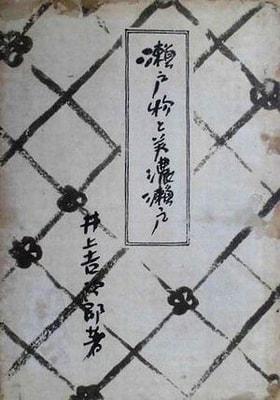 瀬戸物と美濃瀬戸
井上吉次郎著